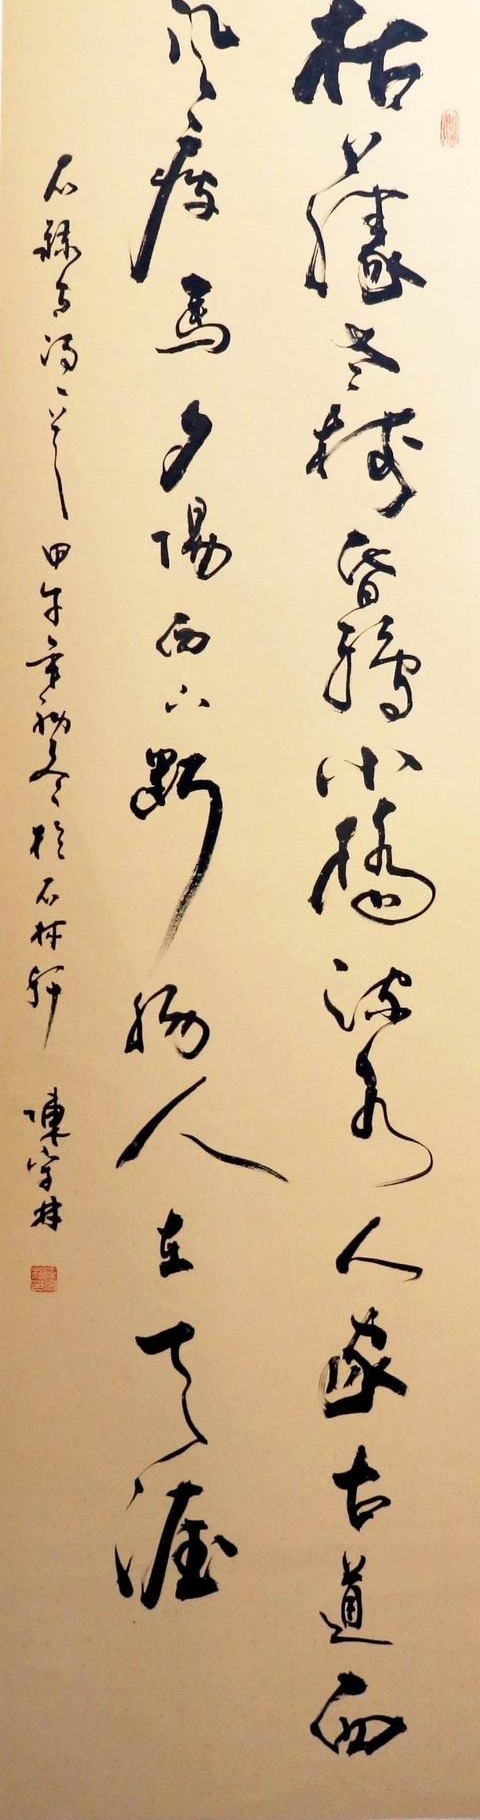 枯藤老樹昏鴉小橋流水人家古道西
風瘦馬夕陽西下斷腸人在天涯
甲午年初冬於石林軒
陳宗林